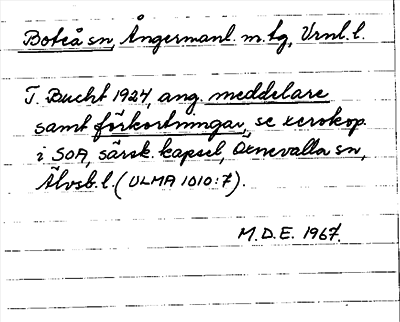 Boteå sn, Ångermanl. m.tg, Vrnl.l.
T. Bucht 1924, ang. meddelare
samt förkortningar, se xerokop.
i SOA, särsk. kapsel, Örnevalla sn,
Älvsb.l. (ULMA 1010:7).
M.D.E. 1967.